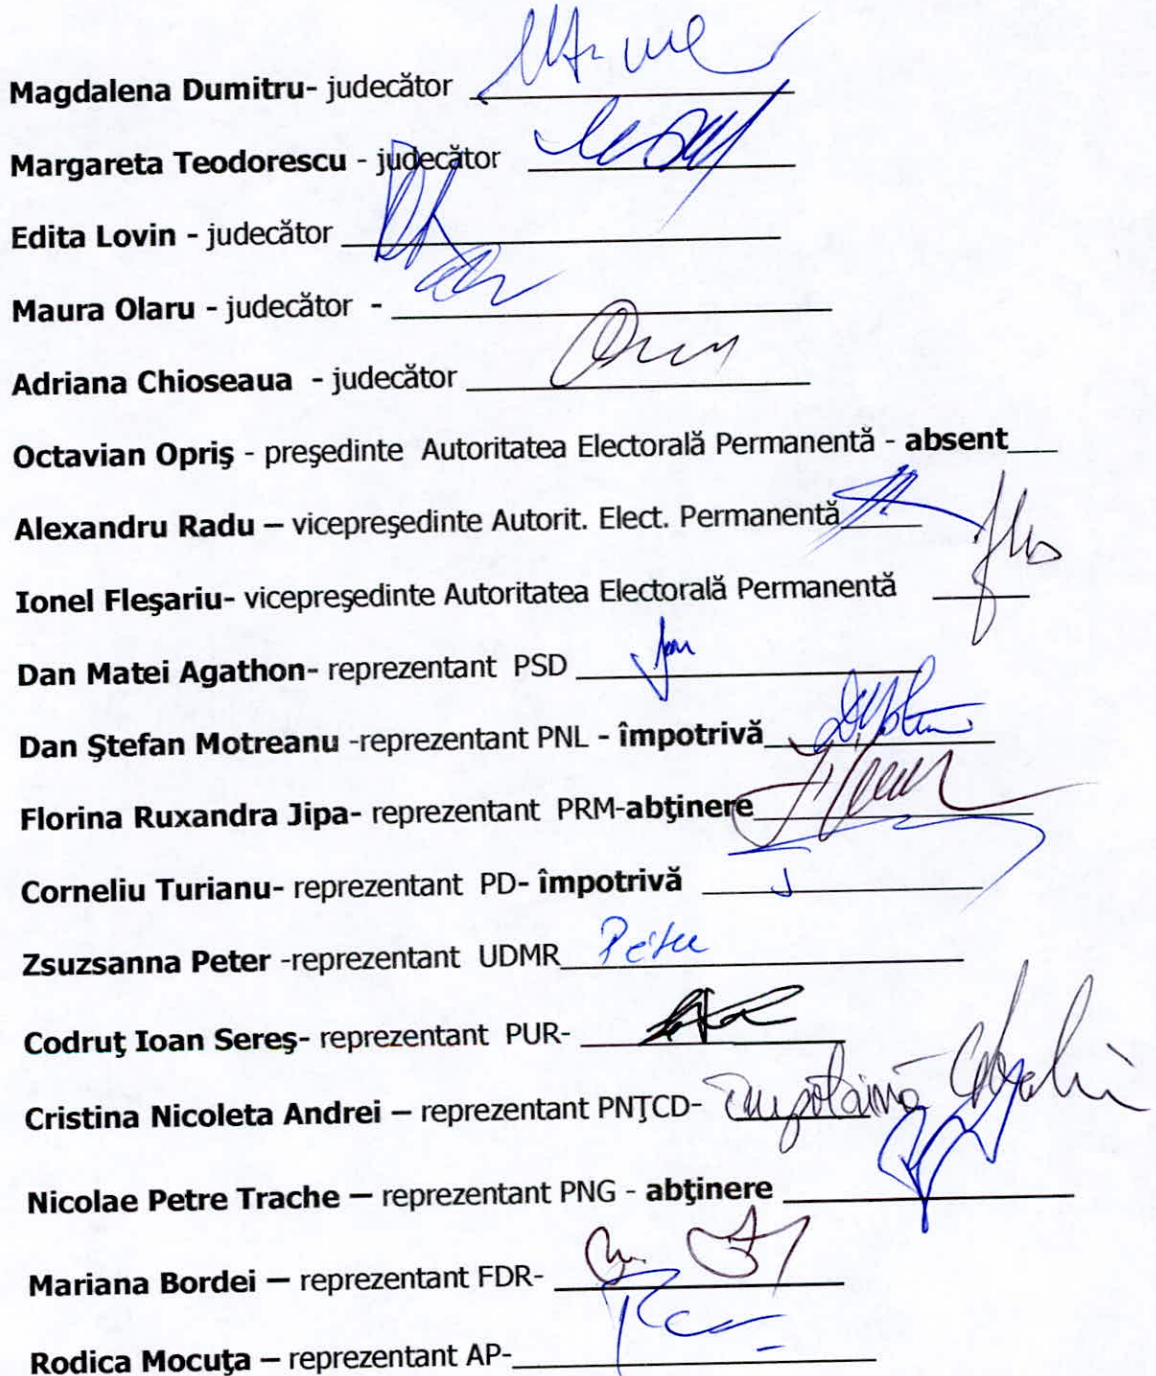 Magdalena Dumitru- judecător
Margareta Teodorescu - judecător
Edita Lovin - judecător
Maura Olaru - judecător -
Adriana Chioseaua - judecător
Octavian Opriş - preşedinte Autoritatea Electorală Permanentă - absent
Alexandru Radu – vicepreşedinte Autorit. Elect. Permanentă
Ionel Fleşariu- vicepreşedinte Autoritatea Electorală Permanentă
Dan Matei Agathon- reprezentant PSD
Dan Ştefan Motreanu -reprezentant PNL - împotrivă
Florina Ruxandra Jipa- reprezentant PRM-abţinere
Corneliu Turianu- reprezentant PD- împotrivă
Zsuzsanna Peter -reprezentant UDMR Peter
Codruţ Ioan Sereş- reprezentant PUR-
Cristina Nicoleta Andrei – reprezentant PNŢCD-
Nicolae Petre Trache – reprezentant PNG - abţinere
Mariana Bordei – reprezentant FDR-
Rodica Mocuţa – reprezentant AP-